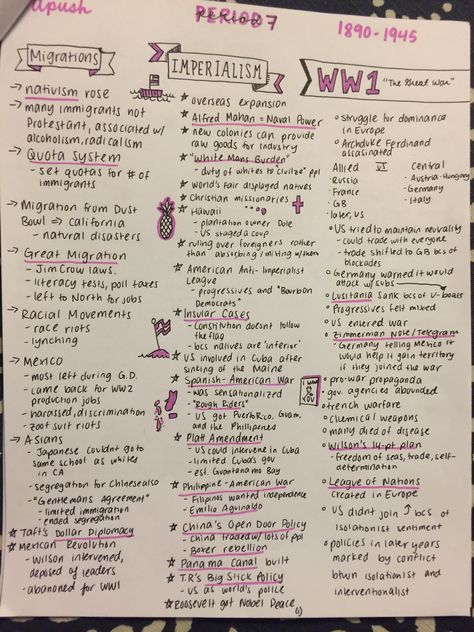 apush
PERIOD 7
1890-1945
Migrations
→ nativism rose
→ many immigrants not
Protestant, associated w/
alcoholism, radicalism
→ Quota System
- set quotas for # of
immigrants
→ Migration from Dust
Bowl ⇒ California
- natural disasters
→ Great Migration
- Jim Crow laws.
- literacy tests, poll taxes
- left to North for jobs
→ Racial Movements
- race riots
- lynching
→ Mexico
- most left during G.D.
- came back for WW2
production jobs
- harassed, discrimination
- zoot suit riots
→ Asians
- Japanese couldnt go to
same school as whites
in CA
- segregation for Chinese also
- "Gentlemans Agreement"
- limited immigration
- ended segregation
★ Taft's Dollar Diplomacy
★ Mexican Revolution
- Wilson intervened,
deposed of leaders
- abandoned for WWI
IMPERIALISM
★ overseas expansion
★ Alfred Mahan = Naval Power
★ new colonies can provide
raw goods for industry
★ "White Mans Burden"
- duty of whites to 'civilize' ppl
★ World's Fair displayed natives
★ Christian missionaries
★ Hawaii
- plantation owner Dole
- US staged a coup
★ ruling over foreigners rather
than absorbing / mixing w/ them
★ American Anti-Imperialist
League
- progressives and "Bourbon
Democrats"
★ Insular Cases
- Constitution doesnt follow
the flag
- bcs natives are 'inferior'
★ US involved in Cuba after
sinking of the Maine
★ Spanish-American War
- was sensationalized
- "Rough Riders"
- US got Puerto Rico, Guam,
and the Phillipenes
★ Platt Amendment
- US could intervene in Cuba
- limited Cuba's gov
- est. Guantanamo Bay
★ Philippine-American War
- Filipinos wanted independence
- Emilio Aguinaldo
★ China's Open Door Policy
- China traded w/ lots of ppl
- Boxer rebellion
★ Panama Canal built
★ T.R's Big Stick Policy
- US as world's police
★ Roosevelt got Nobel Peace
WW1 "The Great War"
o struggle for dominance
in Europe
o Archduke Ferdinand
assasinated
Allied VS Central
-Russia -Austria-Hungary
-France -Germany
-GB -Italy
-later, US
o US tried to maintain neutrality
- could trade with everyone
- trade shifted to GB bcs of
blockades
o Germany warned it would
attack w/ subs
o Lusitania sank bcs of U-boats
o Progressives felt mixed
o US entered war
o Zimmerman Note/Telegram
- Germany telling Mexico it
would help it gain territory
if they joined the war
I WANT YOU
o pro-war propaganda
o gov. agencies abounded
o trench warfare
o chemical weapons
o many died of disease
o Wilson's 14-pt plan
- freedom of seas, trade, self-
determination
o League of Nations
created in Europe
o US didnt join bcs of
isolationist sentiment
o policies in later years
marked by conflict
btwn isolationist and
interventionalist